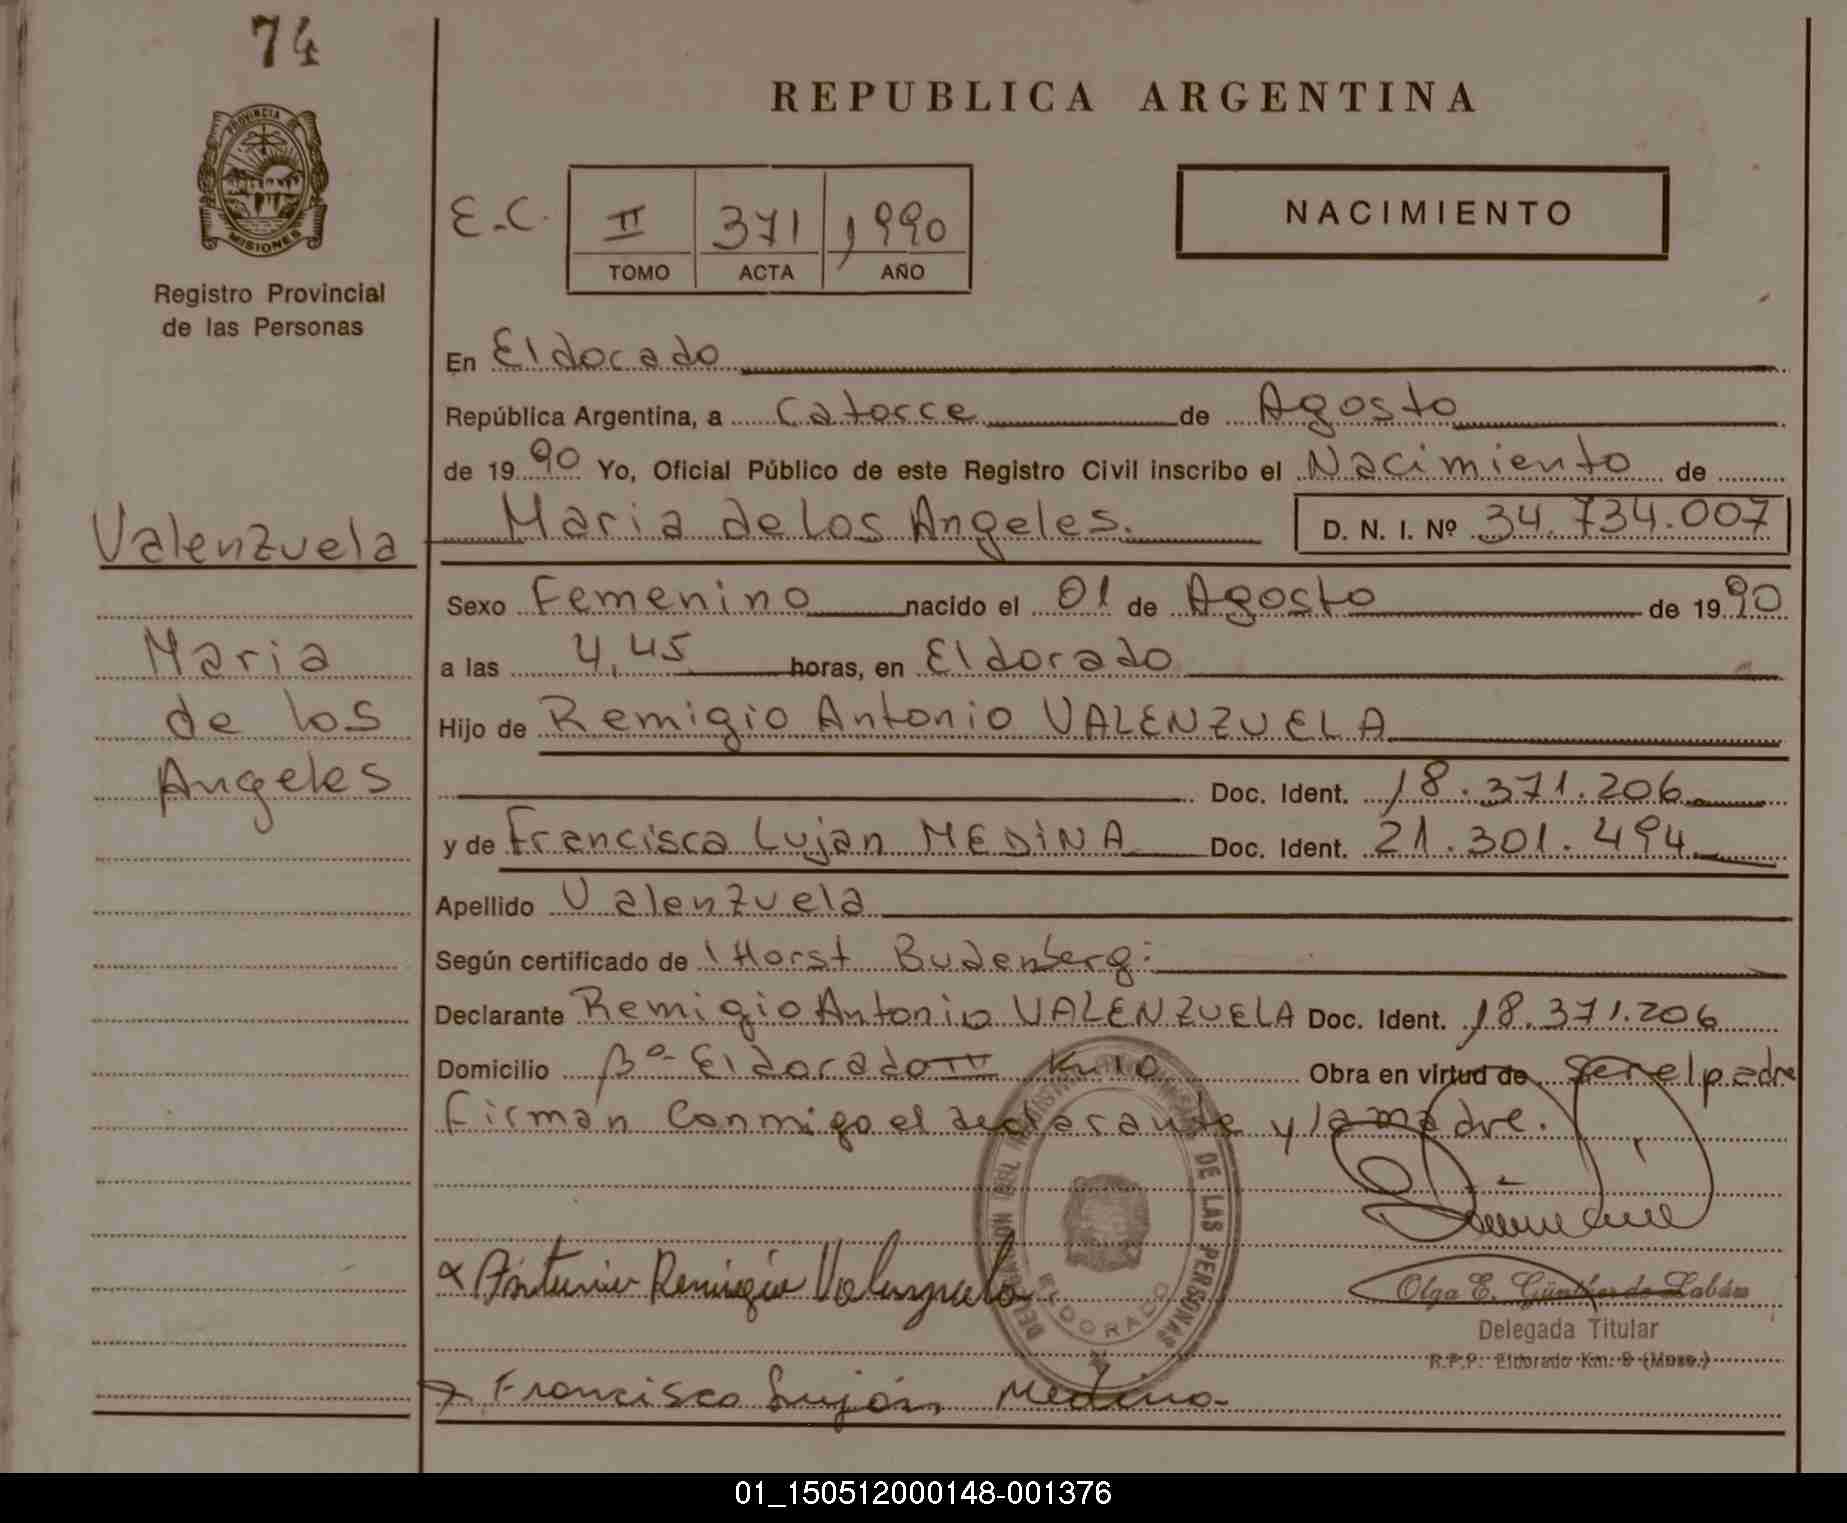 74
PROVINCIA DE
MISIONES
Registro Provincial
de las Personas
REPUBLICA ARGENTINA
E.C. II 371 1990
TOMO ACTA AÑO
NACIMIENTO
En Eldorado
República Argentina, a Catorce de Agosto
de 1990 Yo, Oficial Público de este Registro Civil inscribo el Nacimiento de
Maria de los Angeles. D. N. I. Nº 34.734.007
Valenzuela
Maria
de los
Angeles
Sexo Femenino nacido el 01 de Agosto de 1990
a las 4,45 horas, en Eldorado
Hijo de Remigio Antonio VALENZUELA
Doc. Ident. 18.371.206
y de Francisca Lujan MEDINA Doc. Ident. 21.301.494
Apellido Valenzuela
Según certificado de Horst Budenberg:
Declarante Remigio Antonio VALENZUELA Doc. Ident. 18.371.206
Domicilio Bº Eldorado Km 10 Obra en virtud de ser el padre
Firman conmigo el declarante y la madre.
DE LAS PERSONAS
ELDORADO
Antonio Remigio Valenzuela
Olga E. Günther de Labán
Delegada Titular
R.P.P. Eldorado Km. 9 (Mnes.)
Francisca Luján Medina
01_150512000148-001376